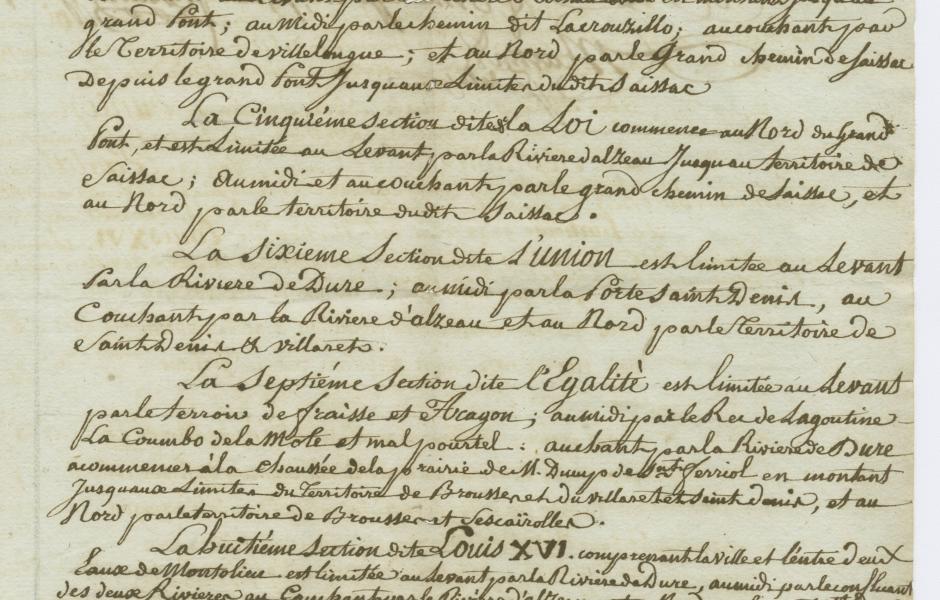 grand Pont ; au midi par le chemin dit Lacrouzillo ; au couchant par
le Territoire de villelongue ; et au Nord par le Grand chemin de Saissac
Depuis le grand Pont Jusqu'aux Limites du dit Saissac
La Cinquiéme section dite la Loi commence au Nord du Grand
Pont, et est Limitée au Levant par la Riviere d'alzeau Jusqu'au territoire de
Saissac ; Au midi et au couchant par le grand chemin de Saissac, et
au Nord par le territoire du dit Saissac.
La sixieme Section dite l'union est limitée au Levant
Par la Riviere de Dure ; au midi par la Porte Saint Denis, au
Couchant par la Riviere d'alzeau et au Nord par le Territoire de
Saint Denis & villaret.
La Septiéme Section dite l'Egalité est limitée au Levant
par le terroir de fraisse et Aragon ; au midi par le Rec de Lagoutine
La Coumbo de la Mole et mal pourtel : au chant par la Riviere de Dure
a commencer à la chaussée de la prairie de M. Dupy de St. ferriol en montant
Jusqu'aux Limites du Territoire de Brousses et du villaret et saint denis, et au
Nord par le territoire de Brousses et Sescaïrolles.
La huitiéme Section dite Louis XVI. comprenant la ville et l'entre deux
Eaux de Montolieu est limitée au levant par la Riviere de Dure, au midi par le confluant
des deux Rivieres au Couchant par la Riviere d'alzeau et au Nord